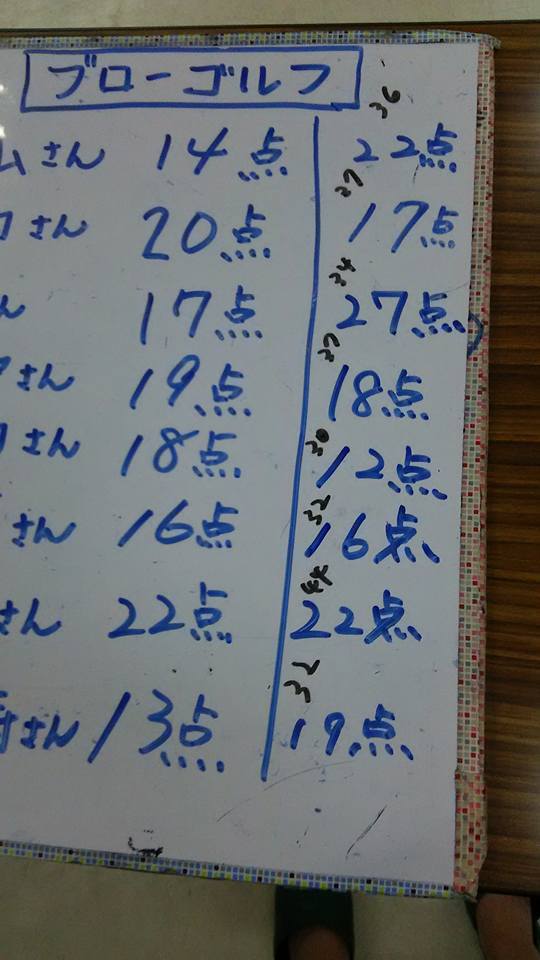 ブローゴルフ
ムさん 14点 36 22点
さん 20点 37 17点
ん 17点 34 27点
さん 19点 37 18点
さん 18点 30 12点
さん 16点 32 16点
さん 22点 44 22点
さん 13点 32 19点